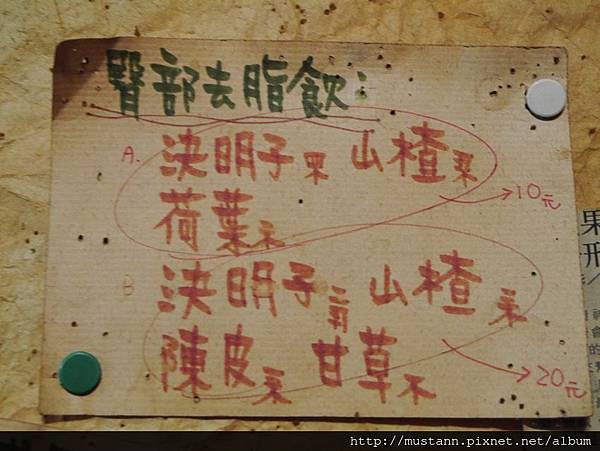 臀部去脂飲：
A. 決明子 山楂
荷葉 → 10元
B 決明子 山楂
陳皮 甘草 → 20元
果
形
http://mustann.pixnet.net/album